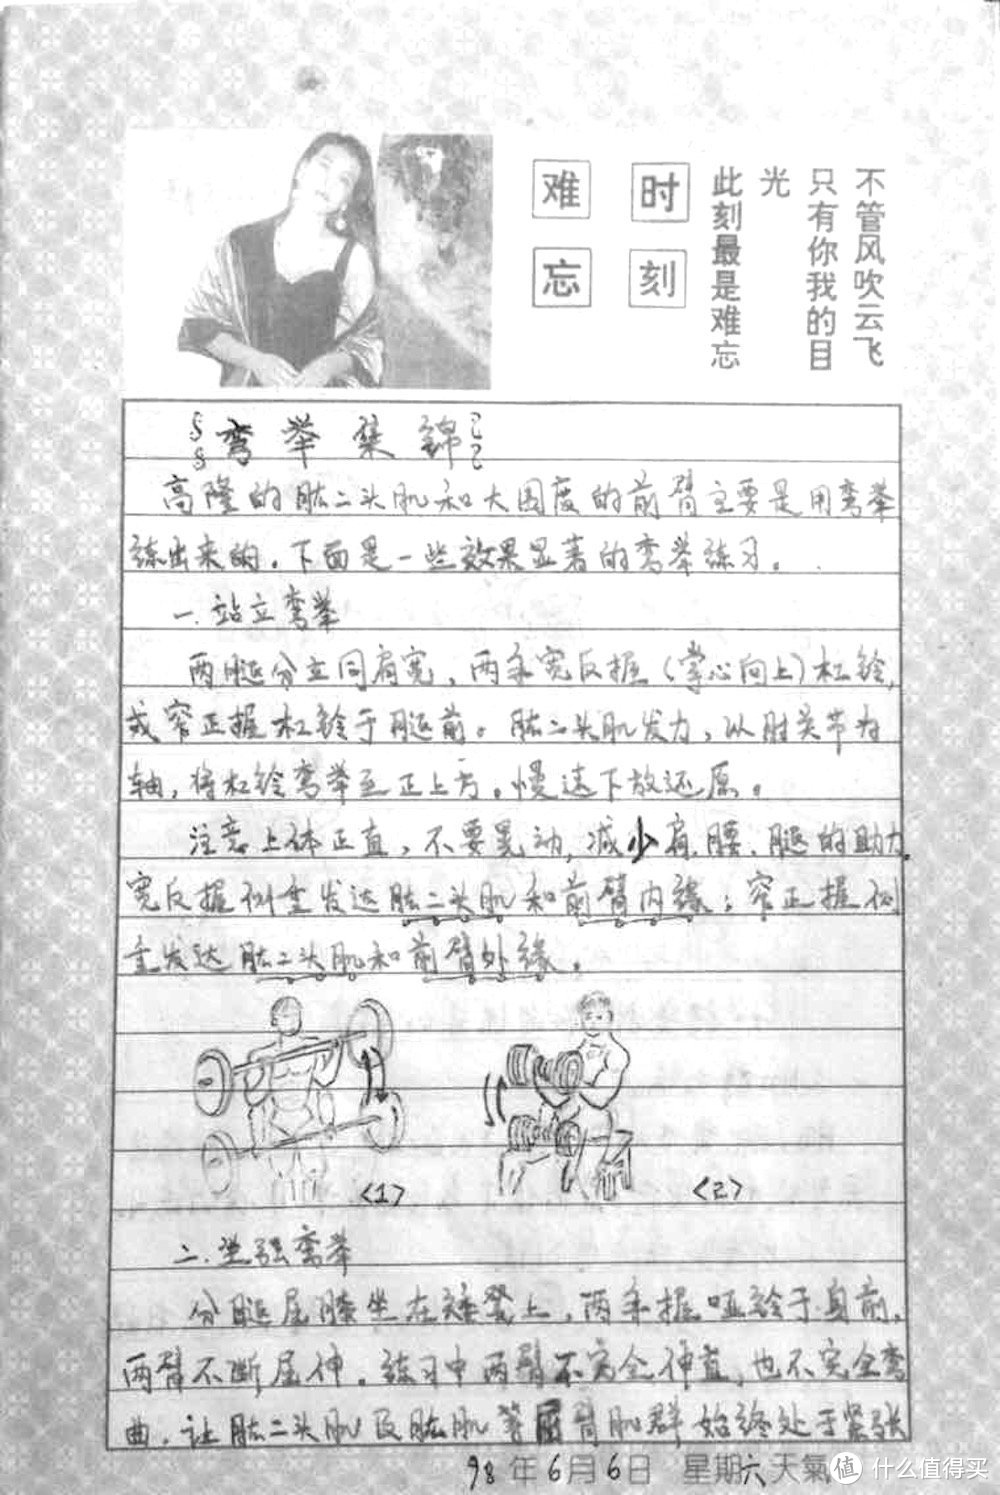 难忘
时刻
不管风吹云飞
只有你我的目
光
此刻最是难忘
弯举集锦
高隆的肱二头肌和大围度的前臂主要是用弯举
练出来的。下面是一些效果显著的弯举练习。
一.站立弯举
两腿分立同肩宽，两手宽反握(掌心向上)杠铃，
或窄正握杠铃于腿前。肱二头肌发力，以肘关节为
轴，将杠铃弯举至正上方。慢速下放还原。
注意上体正直，不要晃动，减少肩、腰、腿的助力。
宽反握侧重发达肱二头肌和前臂内缘；窄正握侧
重发达肱二头肌和前臂外缘。
<1>
<2>
二.坐张弯举
分腿屈膝坐在矮凳上，两手握哑铃于身前，
两臂不断屈伸。练习中两臂不完全伸直，也不完全弯
曲，让肱二头肌及肱肌等臂肌群始终处于紧张
98年6月6日 星期六天氣
值 什么值得买